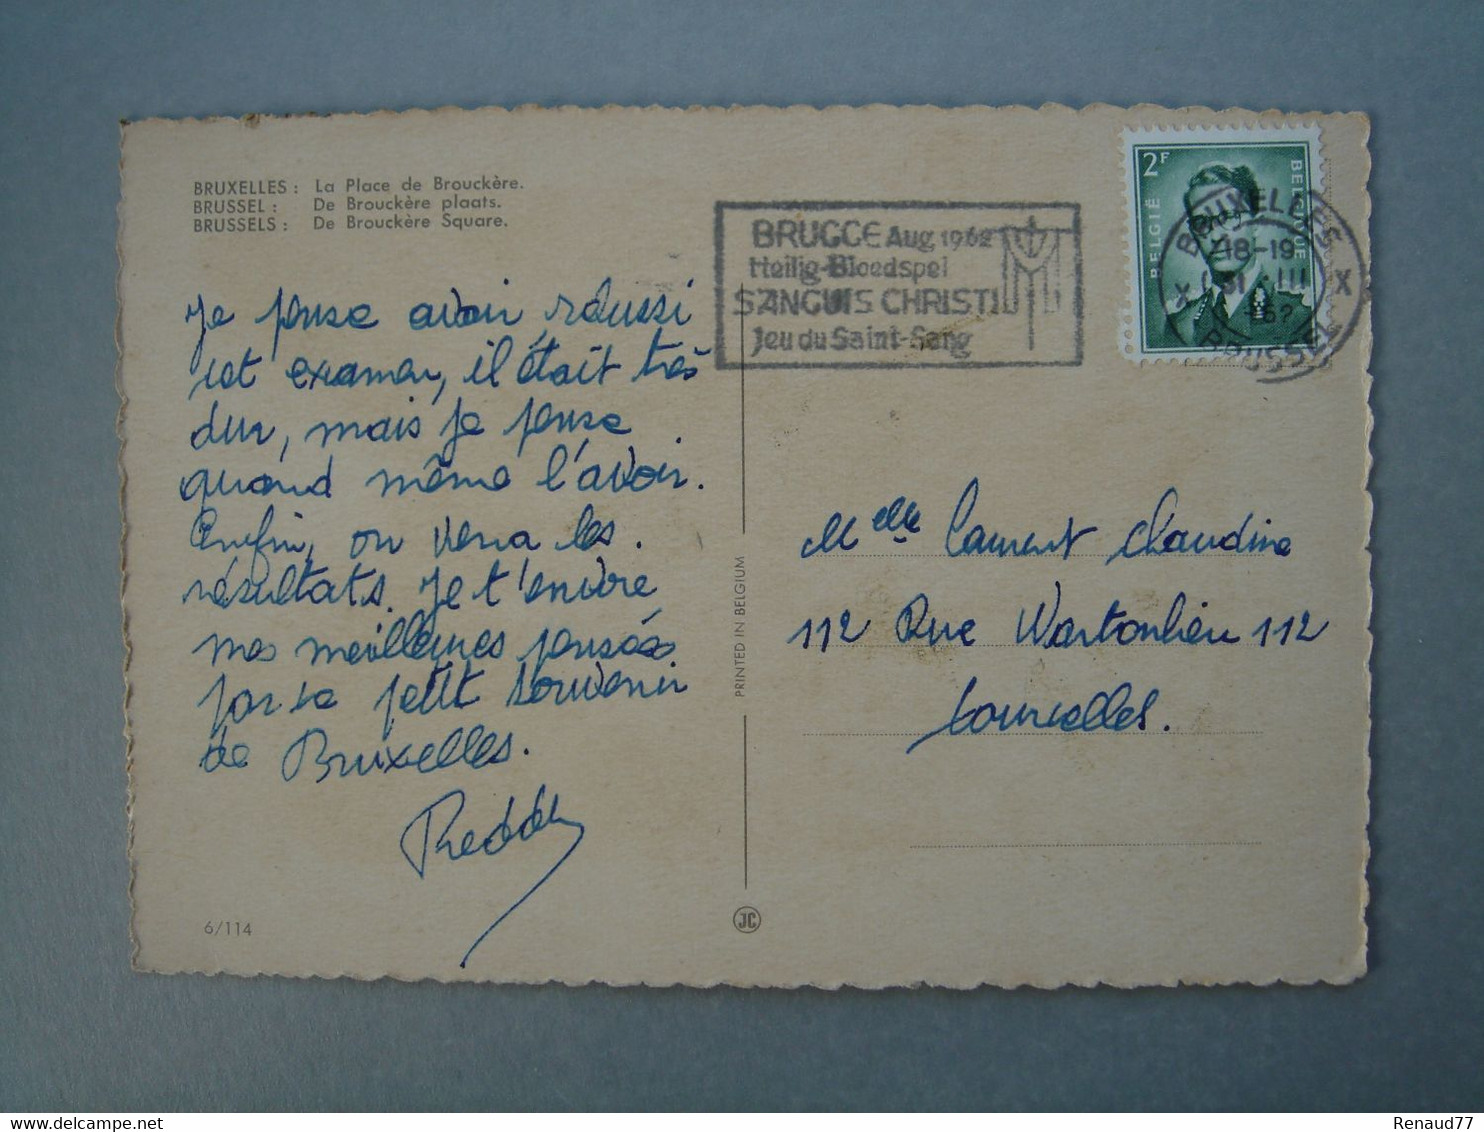 BRUXELLES : La Place de Brouckère.
BRUSSEL : De Brouckère plaats.
BRUSSELS : De Brouckère Square.
Je pense avoir réussi
cet examen, il était très
dur, mais je pense
quand même l'avoir.
Enfin, on verra les
résultats. Je t'envoie
mes meilleures pensées
par ce petit souvenir
de Bruxelles.
Freddy
6/114
JC
PRINTED IN BELGIUM
BRUGGE Aug 1962
Heilig-Bloedspel
SANGUIS CHRISTI
Jeu du Saint-Sang
2F
BELGIË
BELGIQUE
BRUXELLES
X 18-19 X
31 III
62
BRUSSEL
Melle Laurent Claudine
112 Rue Wartonlieu 112
Courcelles.
Renaud77